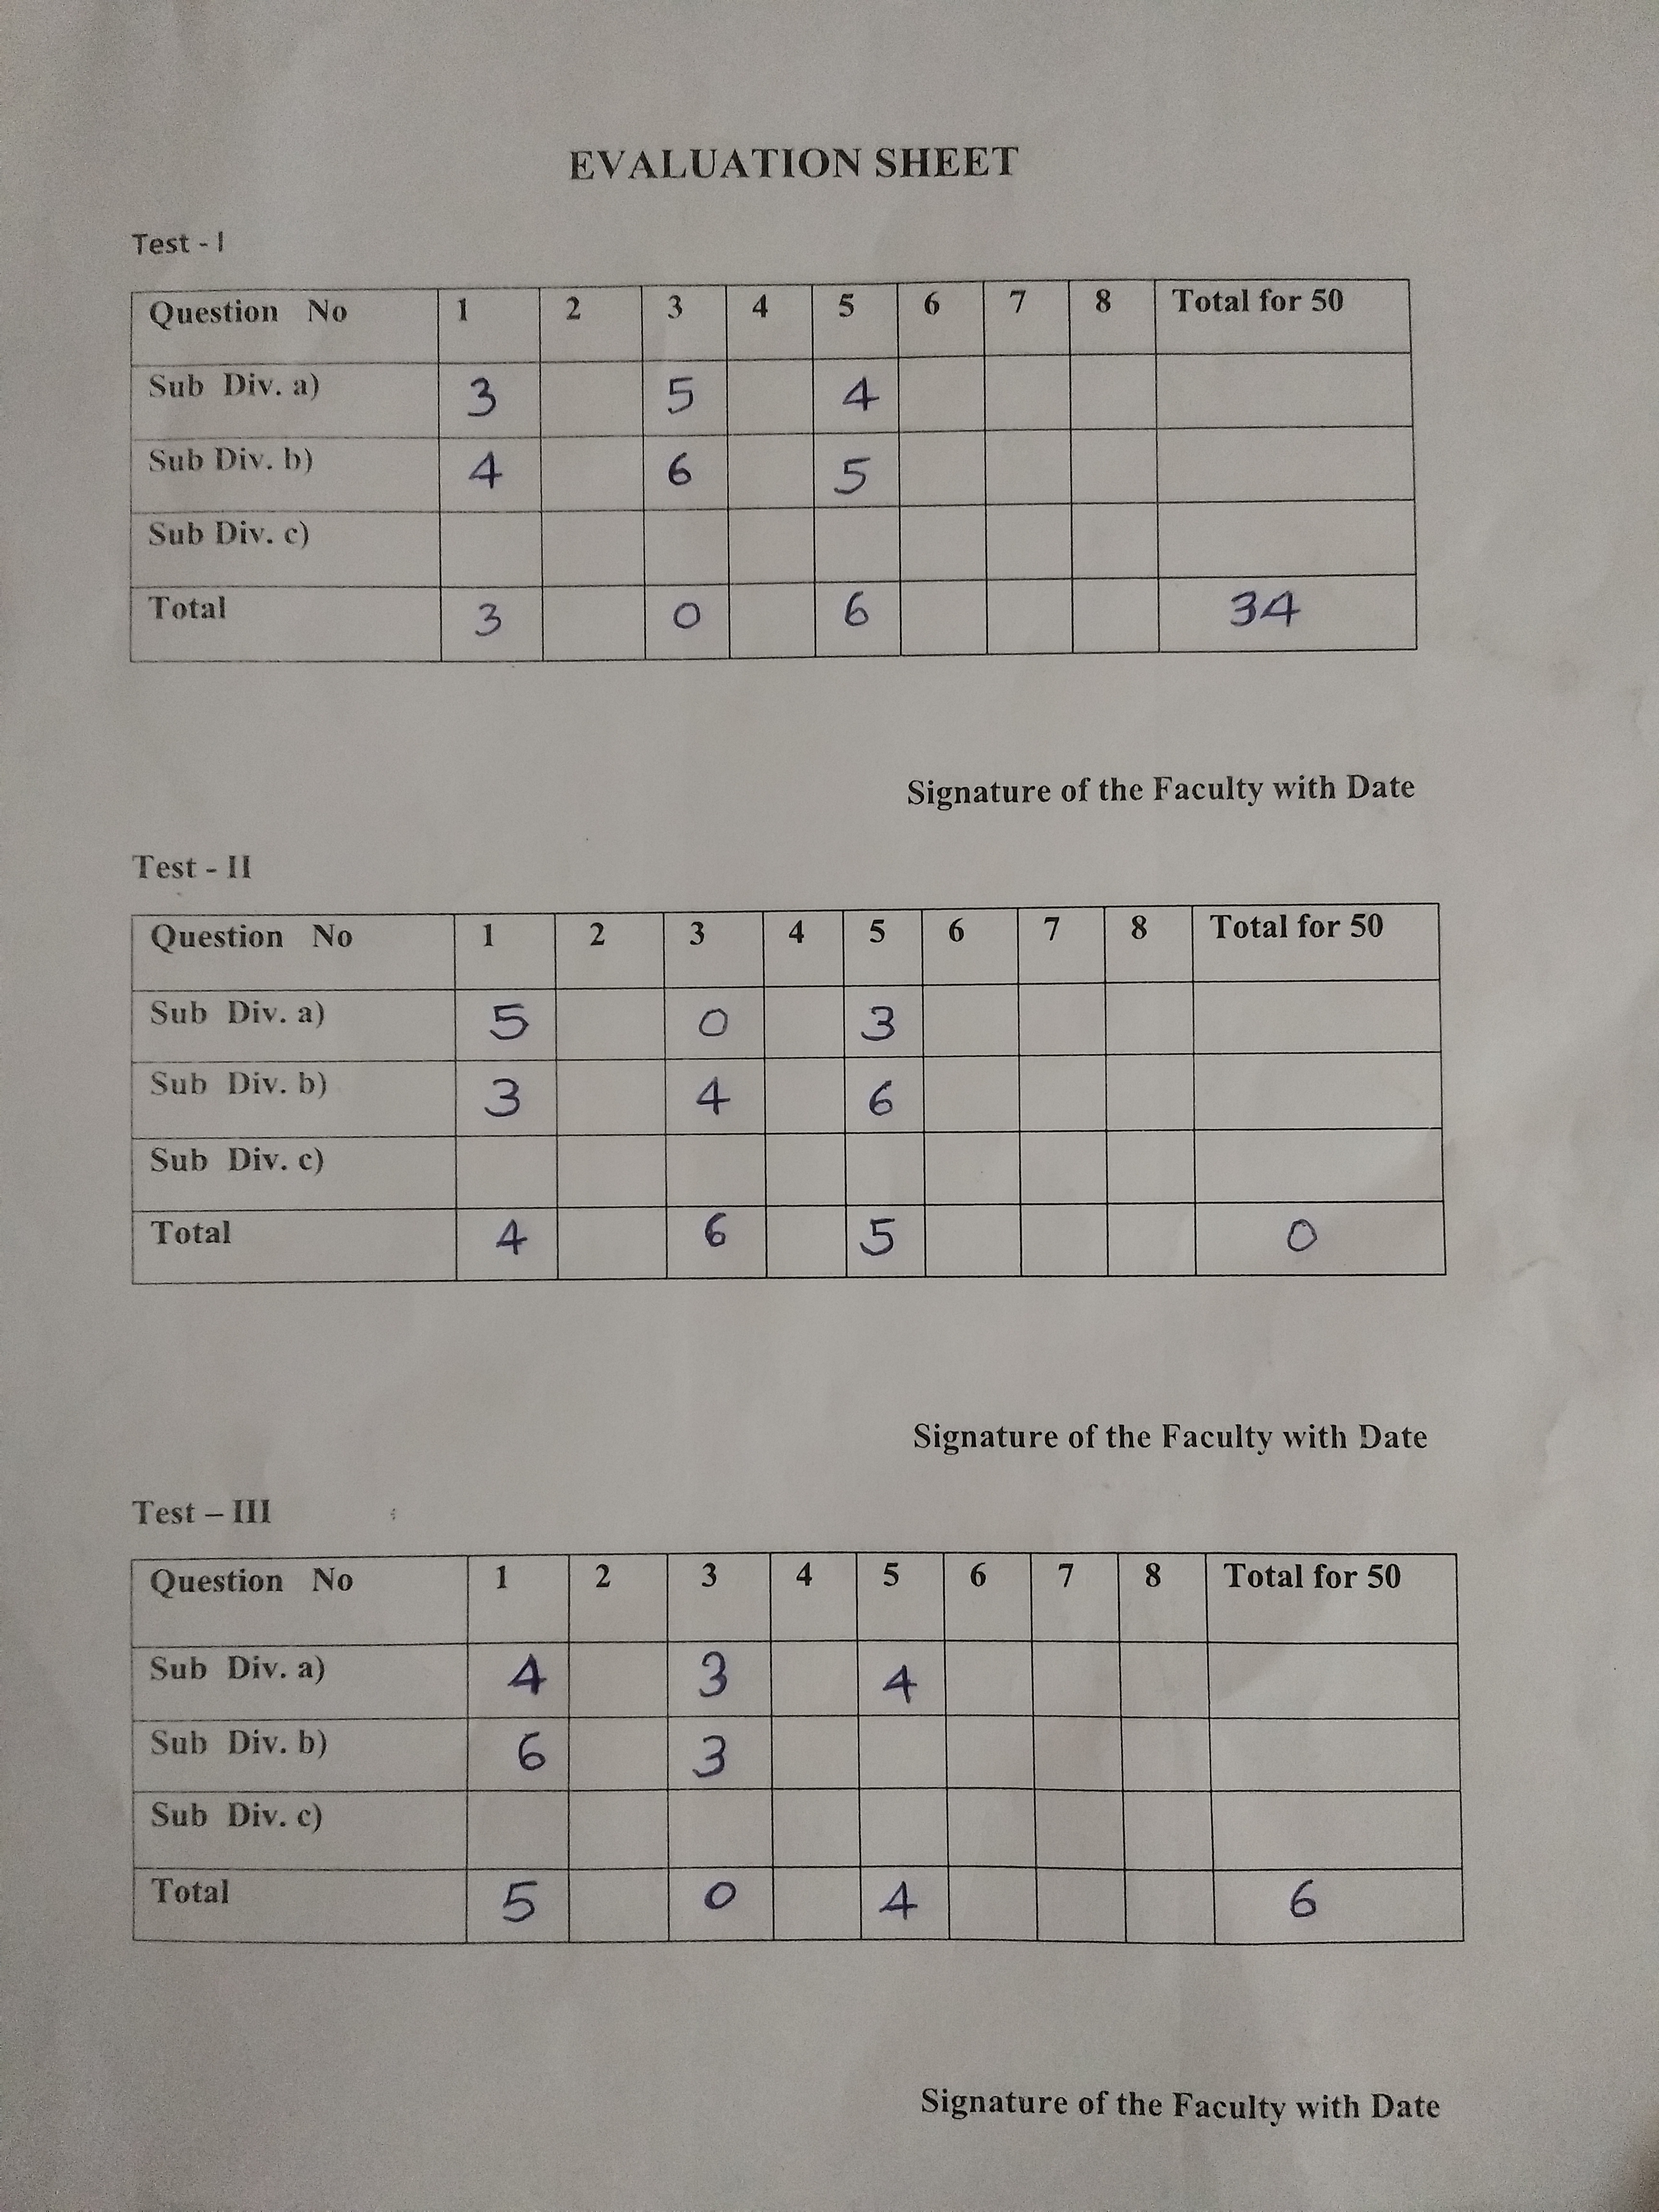 EVALUATION SHEET
Test - I
Question No 1 2 3 4 5 6 7 8 Total for 50
Sub Div. a) 3 5 4
Sub Div. b) 4 6 5
Sub Div. c)
Total 3 0 6 34
Signature of the Faculty with Date
Test - II
Question No 1 2 3 4 5 6 7 8 Total for 50
Sub Div. a) 5 0 3
Sub Div. b) 3 4 6
Sub Div. c)
Total 4 6 5 0
Signature of the Faculty with Date
Test – III
Question No 1 2 3 4 5 6 7 8 Total for 50
Sub Div. a) 4 3 4
Sub Div. b) 6 3
Sub Div. c)
Total 5 0 4 6
Signature of the Faculty with Date